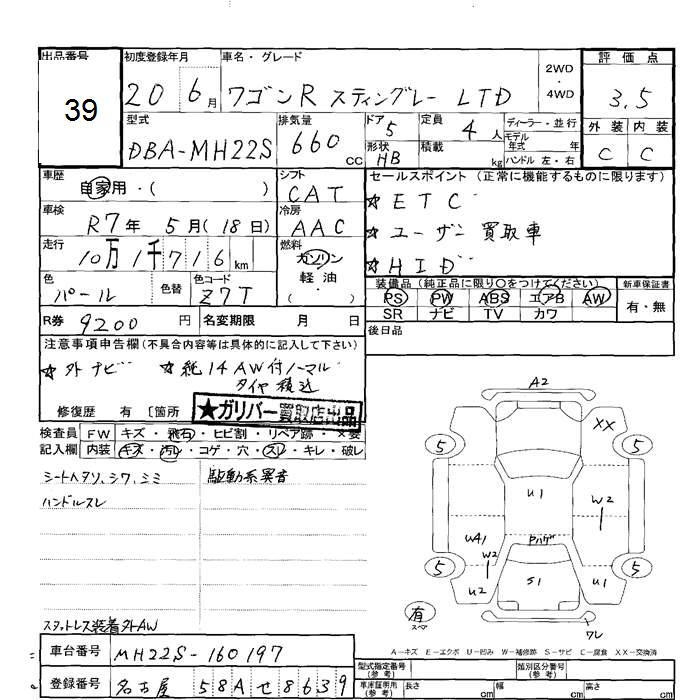 出品番号
39
初度登録年月
20 6月
車名・グレード
ワゴンR スティングレー LTD
2WD
・
4WD
評価点
3.5
外装 内装
C C
型式
DBA-MH22S
排気量
660 cc
ドア 5
形状 HB
定員 4人
積載 kg
ディーラー・並行
モデル年式 年
ハンドル 左・右
車歴
自家用・( )
シフト
CAT
セールスポイント (正常に機能するものに限ります)
☆ETC
☆ユーザー買取車
☆HID
車検
R7年 5月(18日)
冷房
AAC
走行
10万1千716km
燃料
ガソリン
軽油
( )
色
パール
色替
色コード
Z7T
装備品(純正品に限り○をつけてください)
新車保証書
PS PW ABS エアB AW
SR ナビ TV カワ
有・無
R券 9200円
名変期限 月 日
後日品
注意事項申告欄(不具合内容等は具体的に記入して下さい)
☆外ナビ ☆純14AW付ノーマル
タイヤ積込
修復歴 有 〔箇所
★ガリバー買取店出品
検査員 FW キズ・飛石・ヒビ割・リペア跡・×要
記入欄 内装 キズ・汚レ・コゲ・穴・スレ・キレ・破レ
シートヘタリ、シワ、シミ
駆動系異音
ハンドルスレ
スタットレス装着外AW
A2
XX
5 5
U1
W2
UA1
W2
Pハゲ
5 5
U2
S1
U1
有
スペア
ワレ
A-キズ E-エクボ U-凹み W-補修跡 S-サビ C-腐食 XX-交換済
車台番号 MH22S-160197
登録番号 名古屋 58Aせ8639
型式指定番号
(参考)
類別区分番号
(参考)
車庫証明用
(参考)
長さ cm
幅 cm
高さ cm